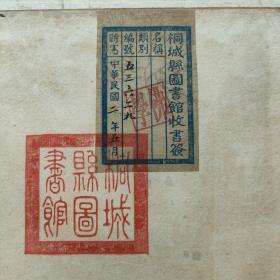 桐城縣圖書館收書簽
名稱
類別
編號 五三六二九
購書 中華民國二年五月
桐城
縣圖
書館